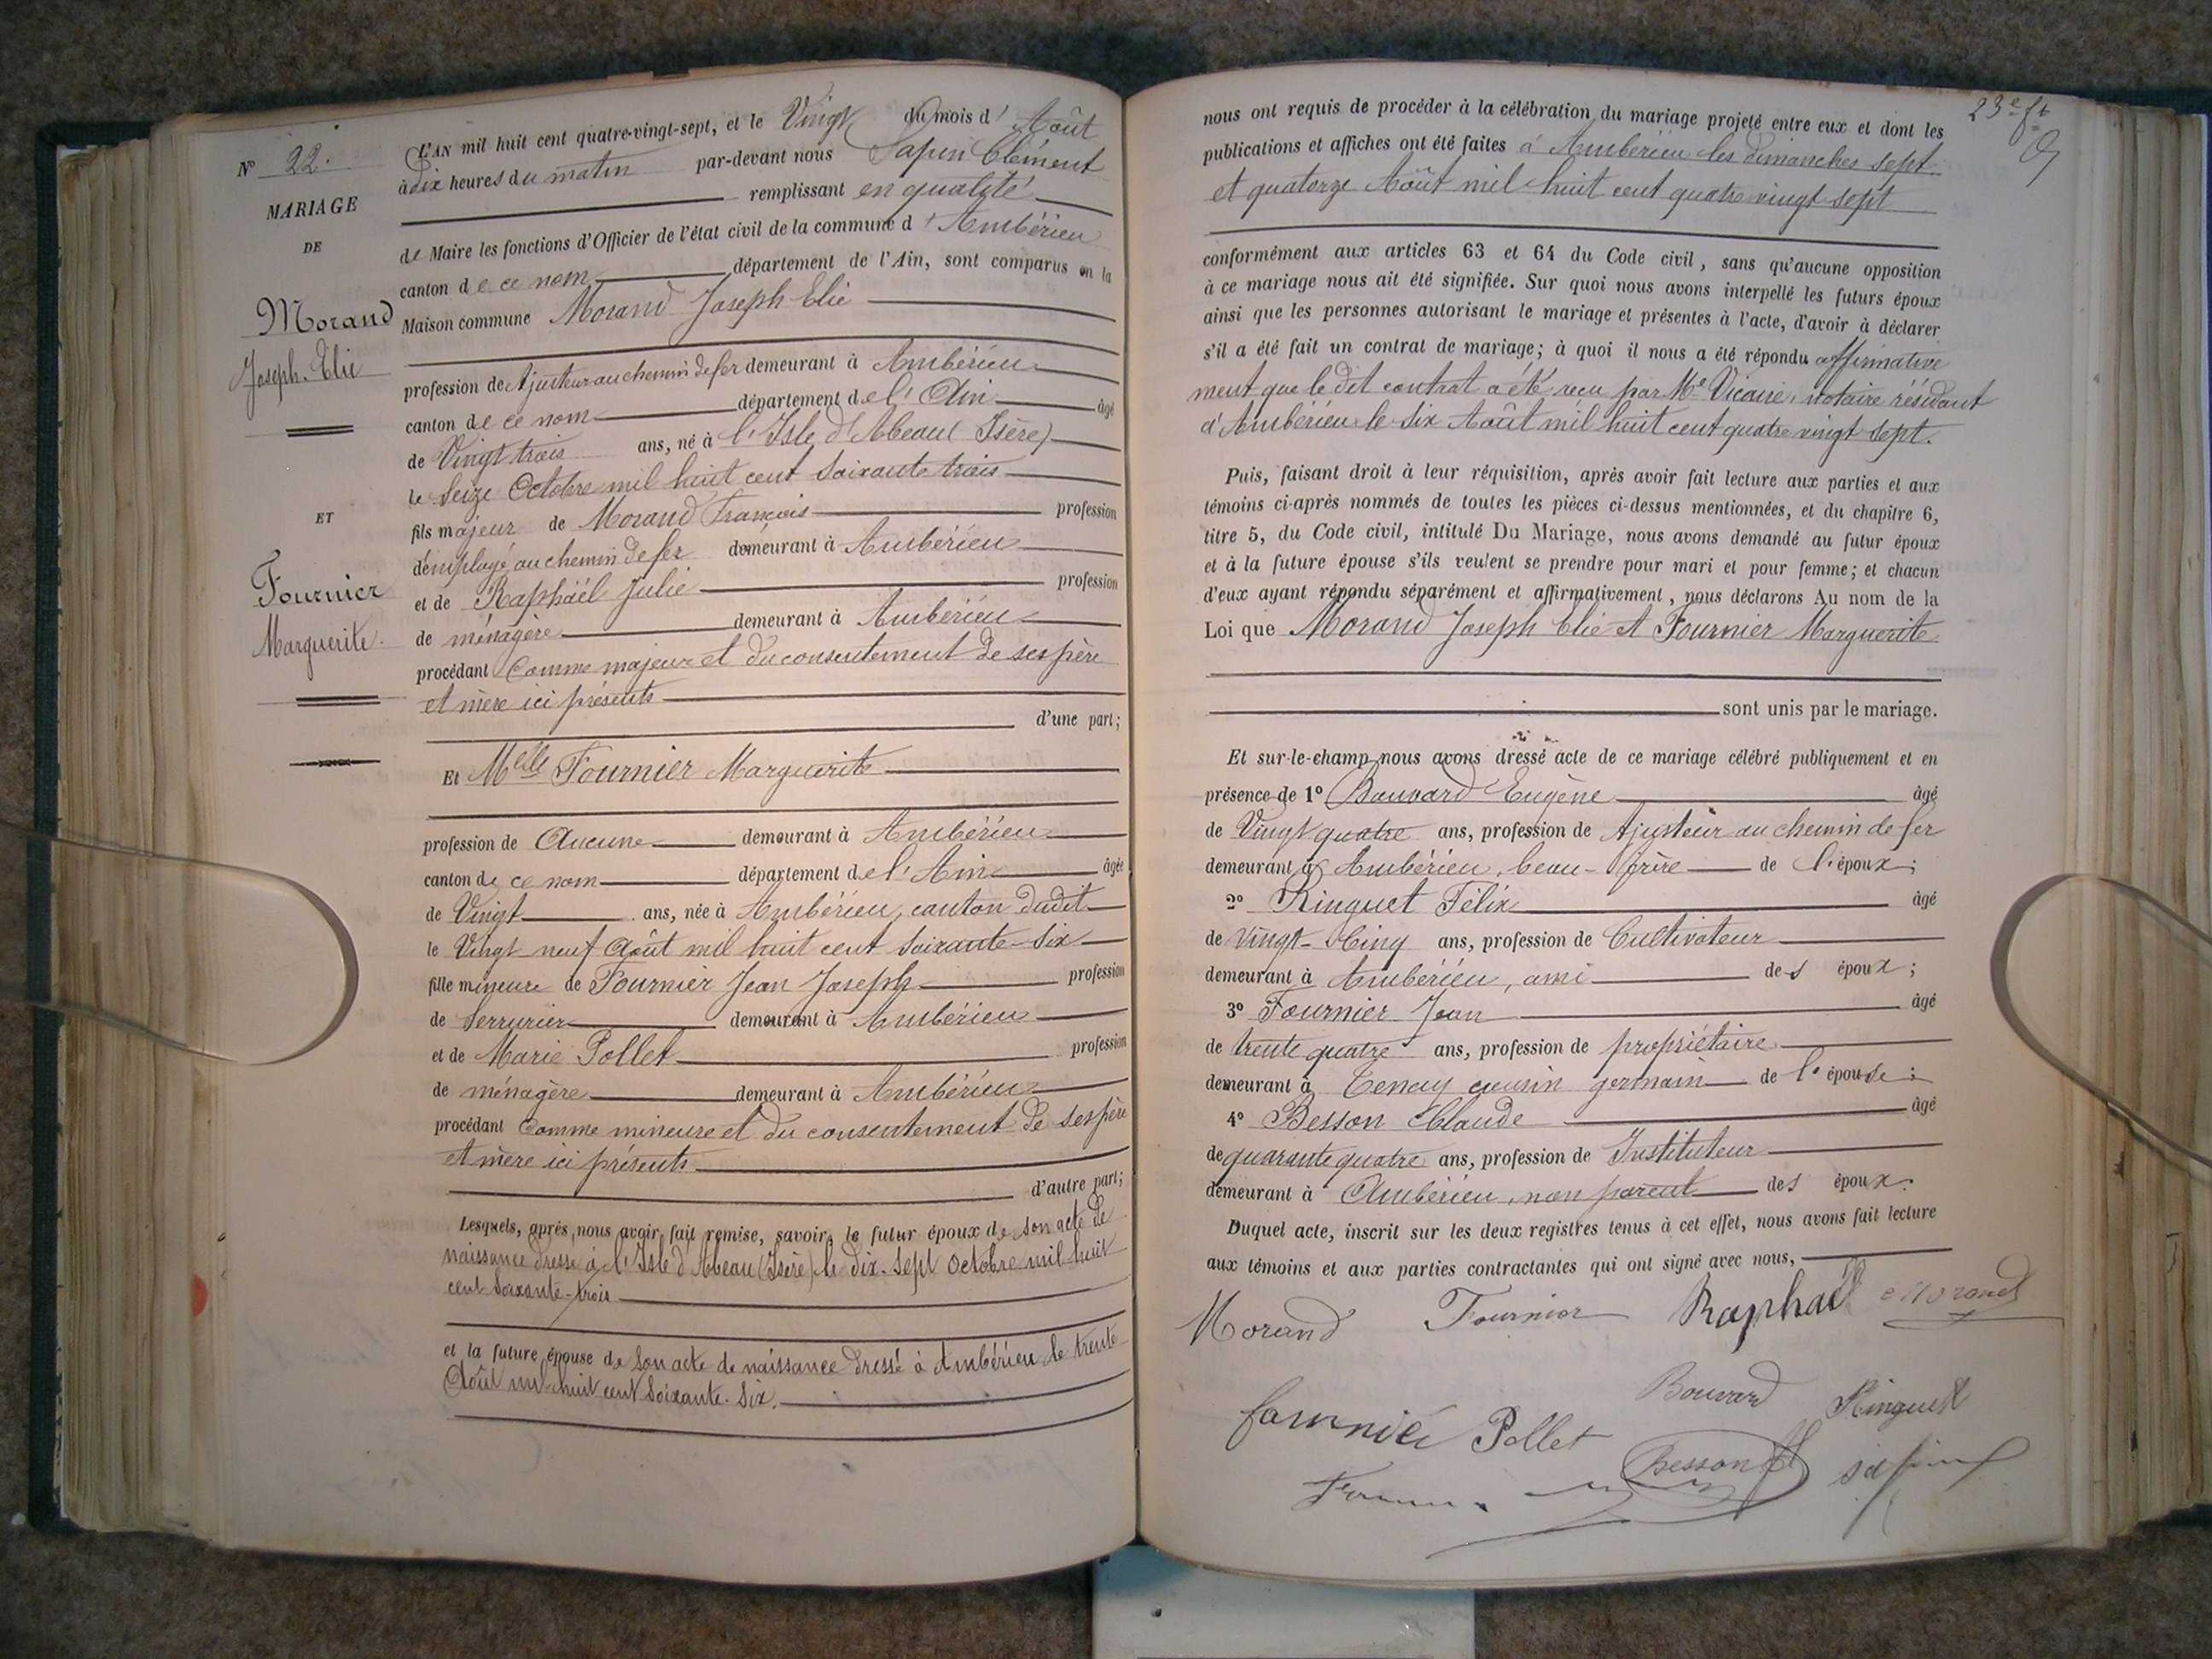 N° 22.
MARIAGE
DE
Morand
Joseph-Elie
ET
Fournier
Marguerite.
L'AN mil huit cent quatre-vingt-sept, et le Vingt du mois d' Août
à dix heures du matin par-devant nous Sapin Clément
remplissant en qualité
de Maire les fonctions d'Officier de l'état civil de la commune d'Ambérieu
canton de ce nom département de l'Ain, sont comparus en la
Maison commune Morand Joseph Elie
profession de Ajusteur au chemin de fer demeurant à Ambérieu
canton de ce nom département de l'Ain âgé
de Vingt trois ans, né à l'Isle d'Abeau (Isère)
le Seize Octobre mil huit cent soixante trois
fils majeur de Morand François profession
d'employé au chemin de fer demeurant à Ambérieu
et de Raphaël Julie profession
de ménagère demeurant à Ambérieu
procédant Comme majeur et du consentement de ses père
et mère ici présents
d'une part;
Et Melle Fournier Marguerite
profession de Aucune demeurant à Ambérieu
canton de ce nom département de l'Ain âgée
de Vingt ans, née à Ambérieu, canton dudit
le Vingt neuf Août mil huit cent soixante-six
fille mineure de Fournier Jean Joseph profession
de Serrurier demeurant à Ambérieu
et de Marie Pollet profession
de ménagère demeurant à Ambérieu
procédant Comme mineure et du consentement de ses père
et mère ici présents
d'autre part;
Lesquels, après nous avoir fait remise, savoir, le futur époux de son acte de
naissance dressé à l'Isle d'Abeau (Isère) le dix-sept Octobre mil huit
cent soixante-trois
et la future épouse de son acte de naissance dressé à Ambérieu le trente
Août mil huit cent soixante-six.
23e ft
nous ont requis de procéder à la célébration du mariage projeté entre eux et dont les
publications et affiches ont été faites à Ambérieu les dimanches sept
et quatorze Août mil huit cent quatre vingt sept
conformément aux articles 63 et 64 du Code civil, sans qu'aucune opposition
à ce mariage nous ait été signifiée. Sur quoi nous avons interpellé les futurs époux
ainsi que les personnes autorisant le mariage et présentes à l'acte, d'avoir à déclarer
s'il a été fait un contrat de mariage; à quoi il nous a été répondu affirmative
ment que le dit contrat a été reçu par Me Vicaire, notaire résidant
à Ambérieu le six Août mil huit cent quatre vingt sept.
Puis, faisant droit à leur réquisition, après avoir fait lecture aux parties et aux
témoins ci-après nommés de toutes les pièces ci-dessus mentionnées, et du chapitre 6,
titre 5, du Code civil, intitulé Du Mariage, nous avons demandé au futur époux
et à la future épouse s'ils veulent se prendre pour mari et pour femme; et chacun
d'eux ayant répondu séparément et affirmativement, nous déclarons Au nom de la
Loi que Morand Joseph Elie et Fournier Marguerite
sont unis par le mariage.
Et sur-le-champ nous avons dressé acte de ce mariage célébré publiquement et en
présence de 1° Bouvard Eugène âgé
de Vingt quatre ans, profession de Ajusteur au chemin de fer
demeurant à Ambérieu, beau-frère de l'époux;
2° Ringuet Félix âgé
de Vingt-Cinq ans, profession de Cultivateur
demeurant à Ambérieu, ami des époux;
3° Fournier Jean âgé
de trente quatre ans, profession de propriétaire
demeurant à Tenay cousin germain de l'épouse;
4° Besson Claude âgé
de quarante quatre ans, profession de Instituteur
demeurant à Ambérieu, non parent des époux.
Duquel acte, inscrit sur les deux registres tenus à cet effet, nous avons fait lecture
aux témoins et aux parties contractantes qui ont signé avec nous,
Morand Fournier Raphaël Morand
Bouvard Ringuet
fournié Pollet
Besson Cl Sapin